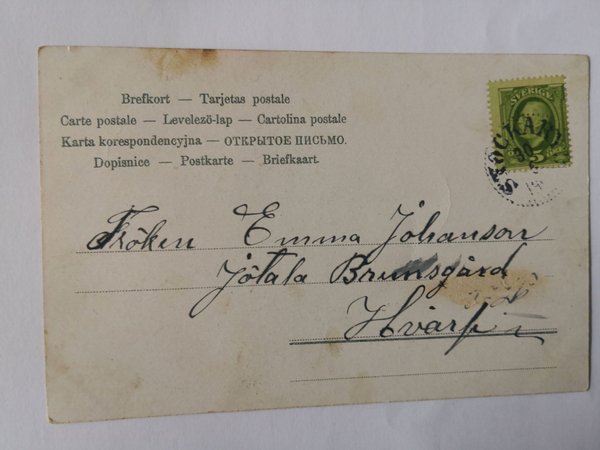 Brefkort — Tarjetas postale
Carte postale — Levelező-lap — Cartolina postale
Karta korespondencyjna — ОТКРЫТОЕ ПИСЬМО.
Dopisnice — Postkarte — Briefkaart.
SVERIGE
5
STOCKARYD
Fröken Emma Johanson
Jötala Brunsgård
Hvarf